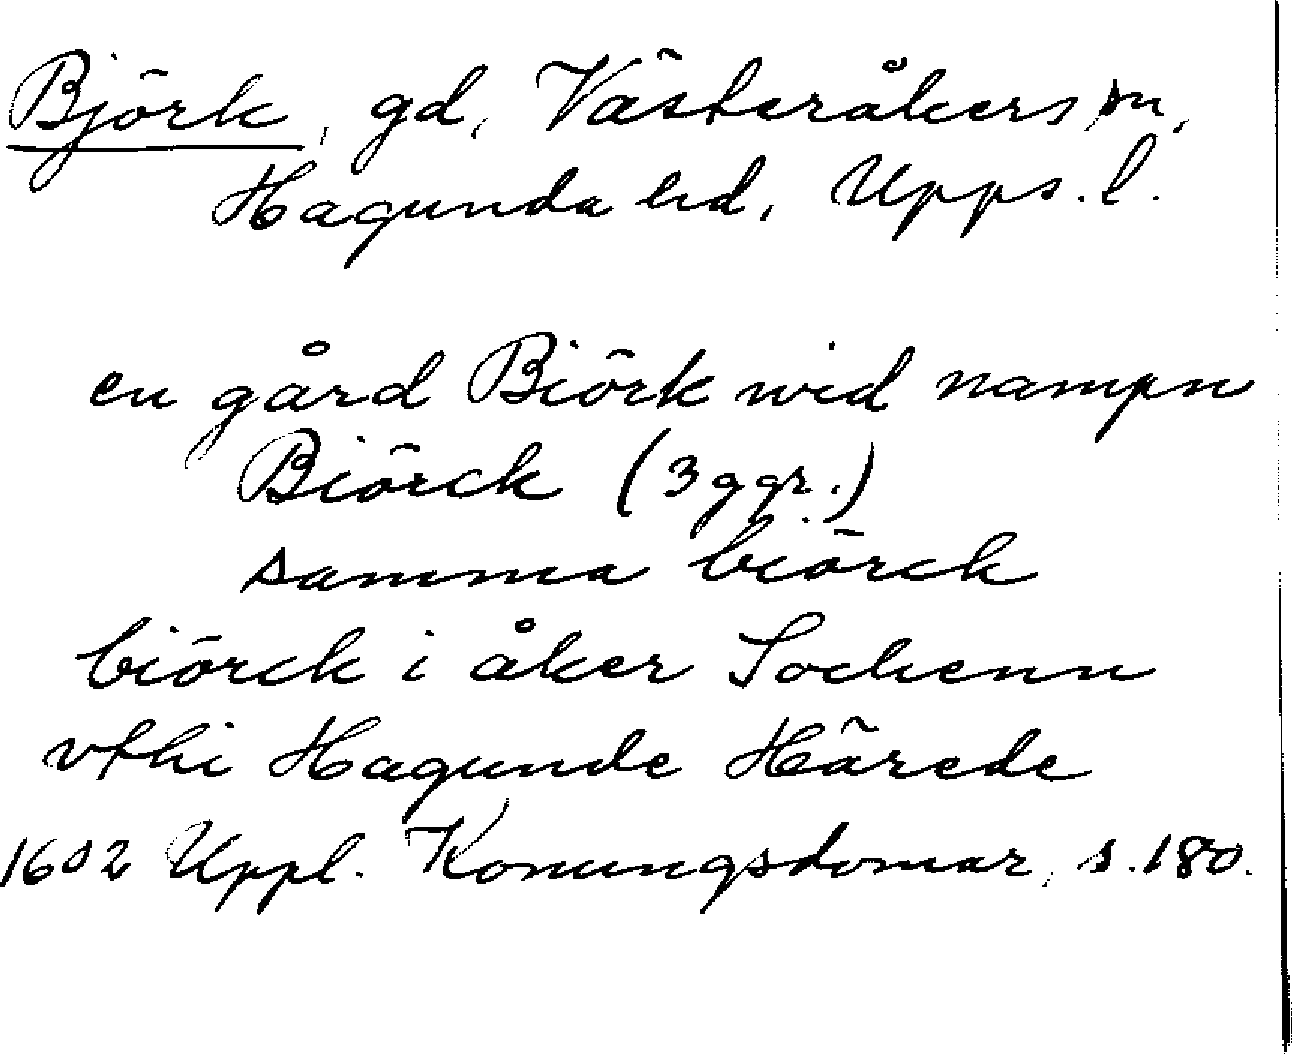 Björk, gd, Västeråkers sn,
Hagunda hd, Upps. l.
en gård Biörk wid nampn
Biörck (3 ggr.)
samma biörck
biörck i åker Sockenn
vthi Hagunde Härede
1602 Uppl. Konungsdomar, s. 180.